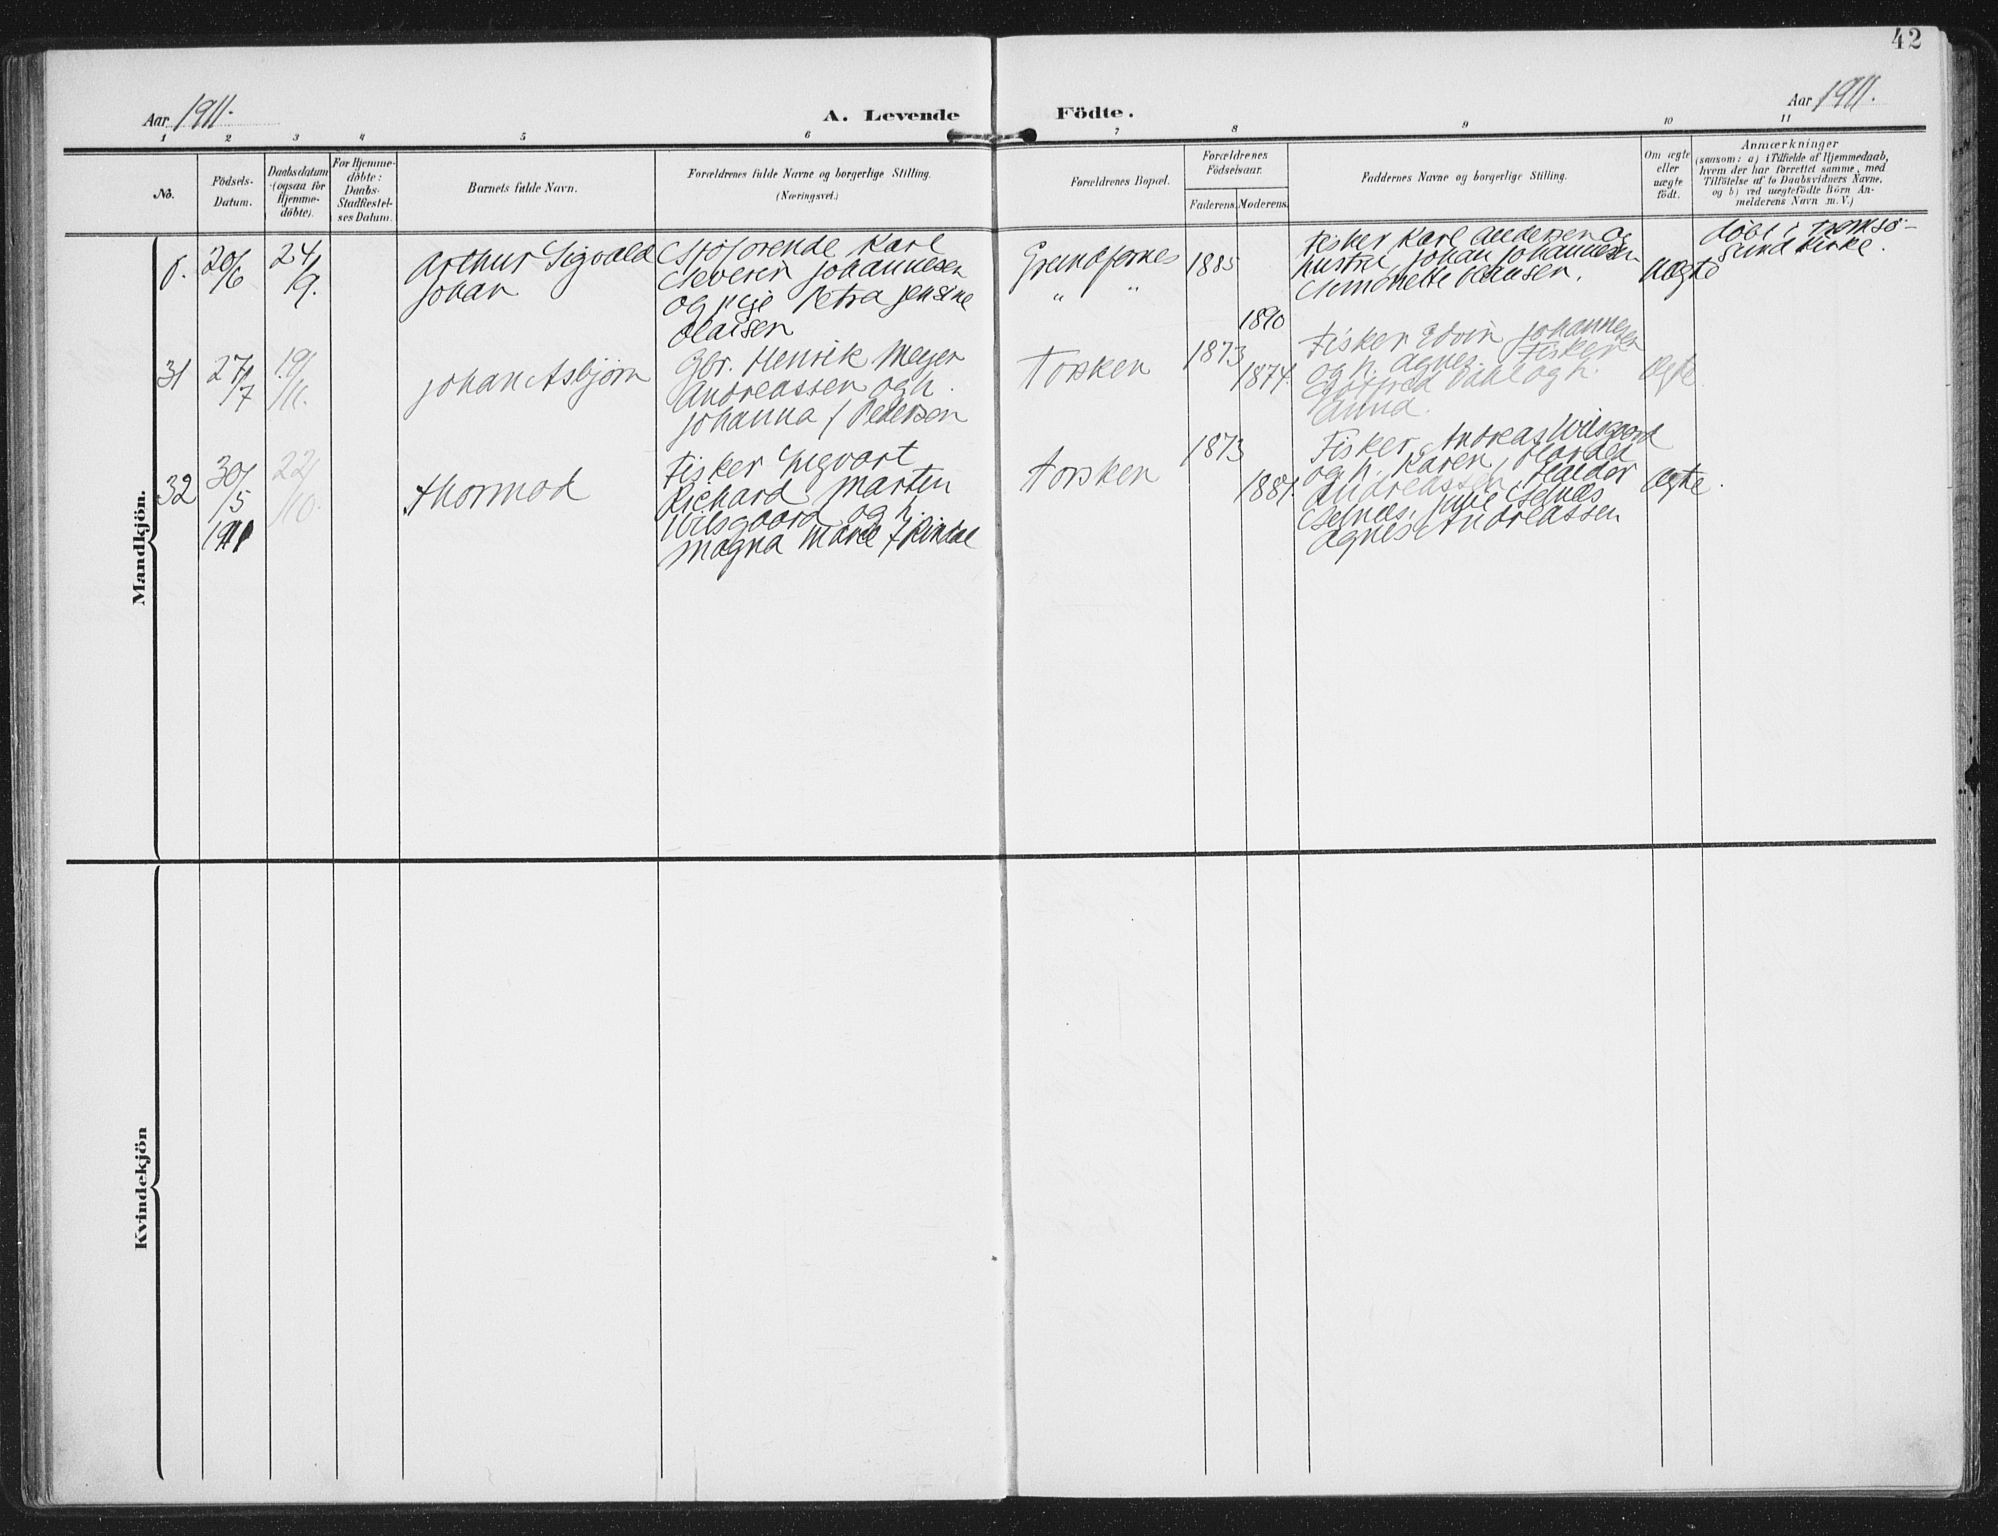 42
Aar 1911.
A. Levende Födte.
Aar 1911.
1 2 3 4 5 6 7 8 9 10 11
No.
Födsels-
Datum.
Daabsdatum
(ogsaa for
Hjemme-
döbte).
For Hjemme-
döbte:
Daabs-
Stadfæstel-
ses Datum.
Barnets fulde Navn.
Forældrenes fulde Navne og borgerlige Stilling.
(Næringsvei.)
Forældrenes Bopæl.
Forældrenes
Födselsaar.
Faderens. Moderens.
Faddernes Navne og borgerlige Stilling.
Om ægte
eller
uægte
födt.
Anmærkninger
(saasom: a) i Tilfælde af Hjemmedaab,
hvem der har forrettet samme, med
Tilföielse af to Daabsvidners Navne,
og b) ved uægtefödte Börn An-
melderens Navn m. V.)
Mandkjön.
20/6
24/9.
Arthur Sigvald
Johan
Karl
Johannesen
og pige Petra Jensine
Olaisen
1885
1890
Fisker Karl Andersen og
hustru Johan Johannesen
Hansen.
Uægte
døbt i
sund kirke.
31
27/7
19/11.
Johan Asbjørn
Gbr. Henrik Meyer
Andreassen og h.
Johanna f Pedersen
Torsken
1873
1874.
Fisker Edvin Johannesen
og h. Agnes. Fisker
Dahl og h.
Anna.
Ægte.
32
30/5
1911
22/10.
Thormod
Fisker Ingvart
Richard Martin
Wilsgaard og h.
Magna Marie f
Torsken
1873
1881.
Fisker Andreas Wilsgaard
og h. Karen,
Andreassen, Haldor
Selnæs, Julie Selnæs
Agnes Andreassen
Ægte.
Kvindekjön